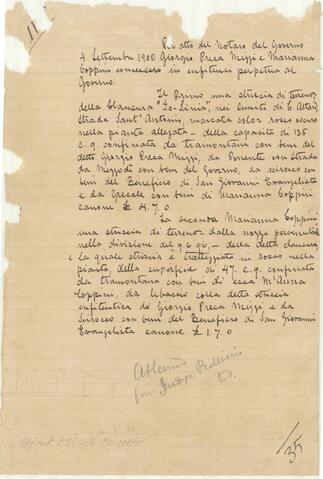 11
Per atto del Notaro del Governo
4 Settembre 1900 Giorgio Preca Mizzi e Marianna
Coppini concessero in enfiteusi perpetua al
Governo.
Il Primo una striscia di terreno
della Clausura "Is-Sinia", nei limiti di C. Attard
Strada Sant' Antonio, marcata color rosso scuro
nella pianta allegata - della capacità di 135
c. q. confinata da tramontana con beni del
detto Giorgio Preca Mizzi, da Ponente con Strada
da Mezzodì con beni del Governo, da scirocco con
beni del Beneficio di San Giovanni Evangelista
e da Grecale con beni di Marianna Coppini
canone £ 4.7.0
La seconda Marianna Coppini
una striscia di terreno dalla parte
nella divisione del 9.6.96, - della detta clausura
la quale striscia è tratteggiata in rosso nella
pianta della superficie di 47. c. q. confinata
da tramontana con beni di essa M'Anna
Coppini, da Libeccio colla detta striscia
enfiteutica di Giorgio Preca Mizzi, e da
Scirocco con beni del Beneficio di San Giovanni
Evangelista canone £ 1.7.0
/35